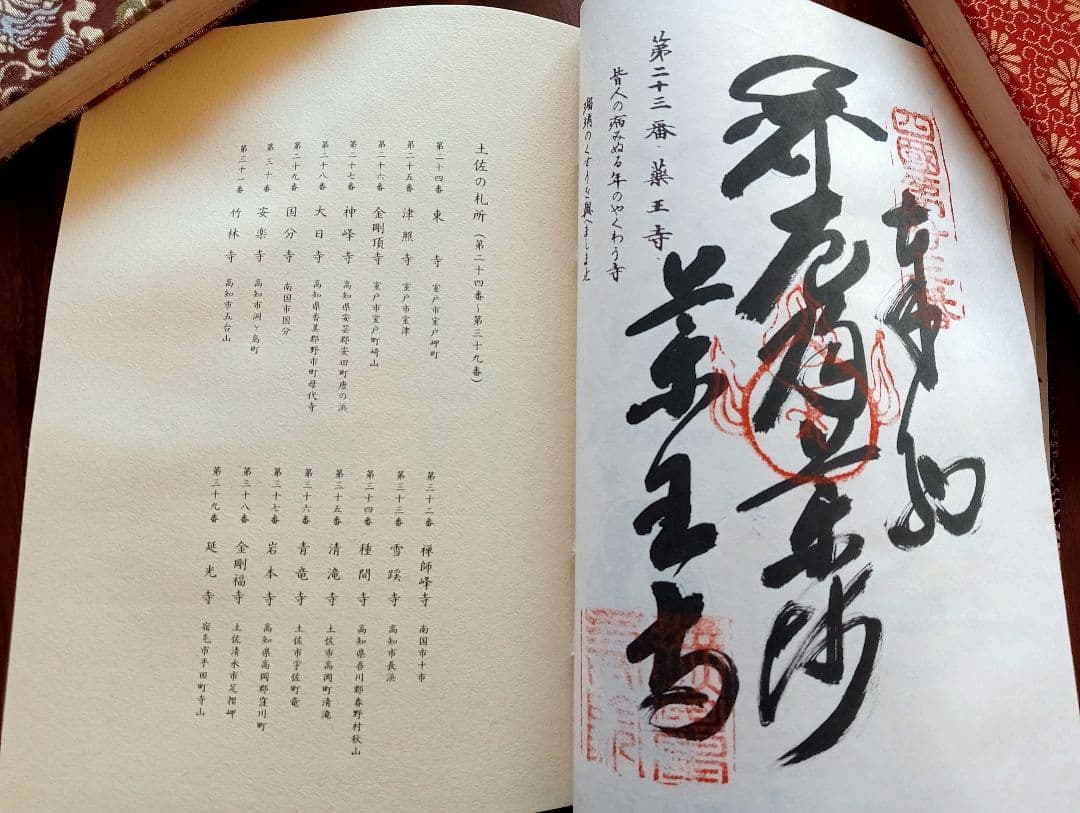 四國第廿三番
薬王寺
第二十三番 薬王寺
皆人の病みぬる年のやくわう寺
瑠璃のくすりを與へましませ
土佐の札所(第二十四番〜第三十九番)
第二十四番 東寺 室戸市室戸岬町
第二十五番 津照寺 室戸市室津
第二十六番 金剛頂寺 室戸市室戸町崎山
第二十七番 神峰寺 高知県安芸郡安田町唐の浜
第二十八番 大日寺 高知県香美郡野市町母代寺
第二十九番 国分寺 南国市国分
第三十番 安楽寺 高知市洞ヶ島町
第三十一番 竹林寺 高知市五台山
第三十二番 禅師峰寺 南国市十市
第三十三番 雪蹊寺 高知市長浜
第三十四番 種間寺 高知県吾川郡春野村秋山
第三十五番 清滝寺 土佐市高岡町清滝
第三十六番 青竜寺 土佐市宇佐町竜
第三十七番 岩本寺 高知県高岡郡窪川町
第三十八番 金剛福寺 土佐清水市足摺岬
第三十九番 延光寺 宿毛市平田町寺山